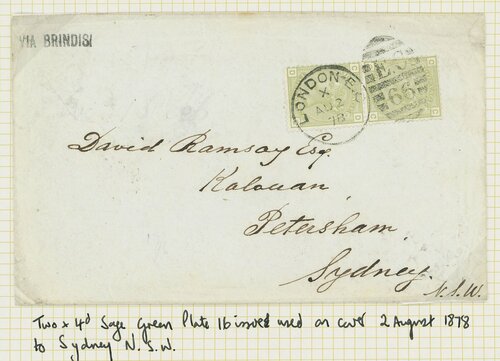 VIA BRINDISI
LONDON·E.C
X
AU 2
78
C
E.C
66
David Ramsay Esq.
Kalouan,
Petersham,
Sydney.
N.S.W.
Two x 4d Sage Green Plate 16 issued used on cover 2 August 1878
to Sydney N.S.W.